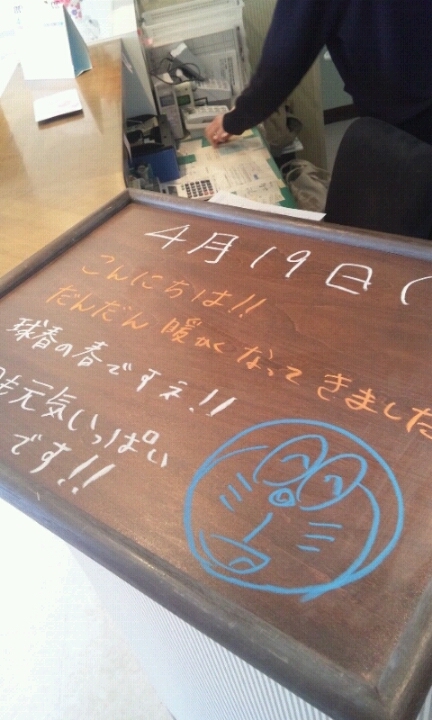 4月19日(
こんにちは!!
だんだん 暖かくなってきました
球春の春ですネ!!
も元気いっぱい
です!!